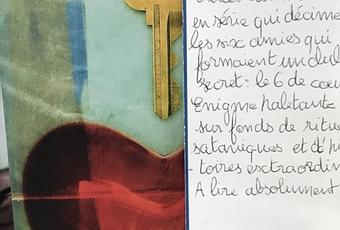 en série qui décime
les six amies qui
formaient un club
secret : le 6 de cœur
Enigme haletante
sur fonds de ritue
sataniques et d'hi
-toires extraordin
A lire absolument